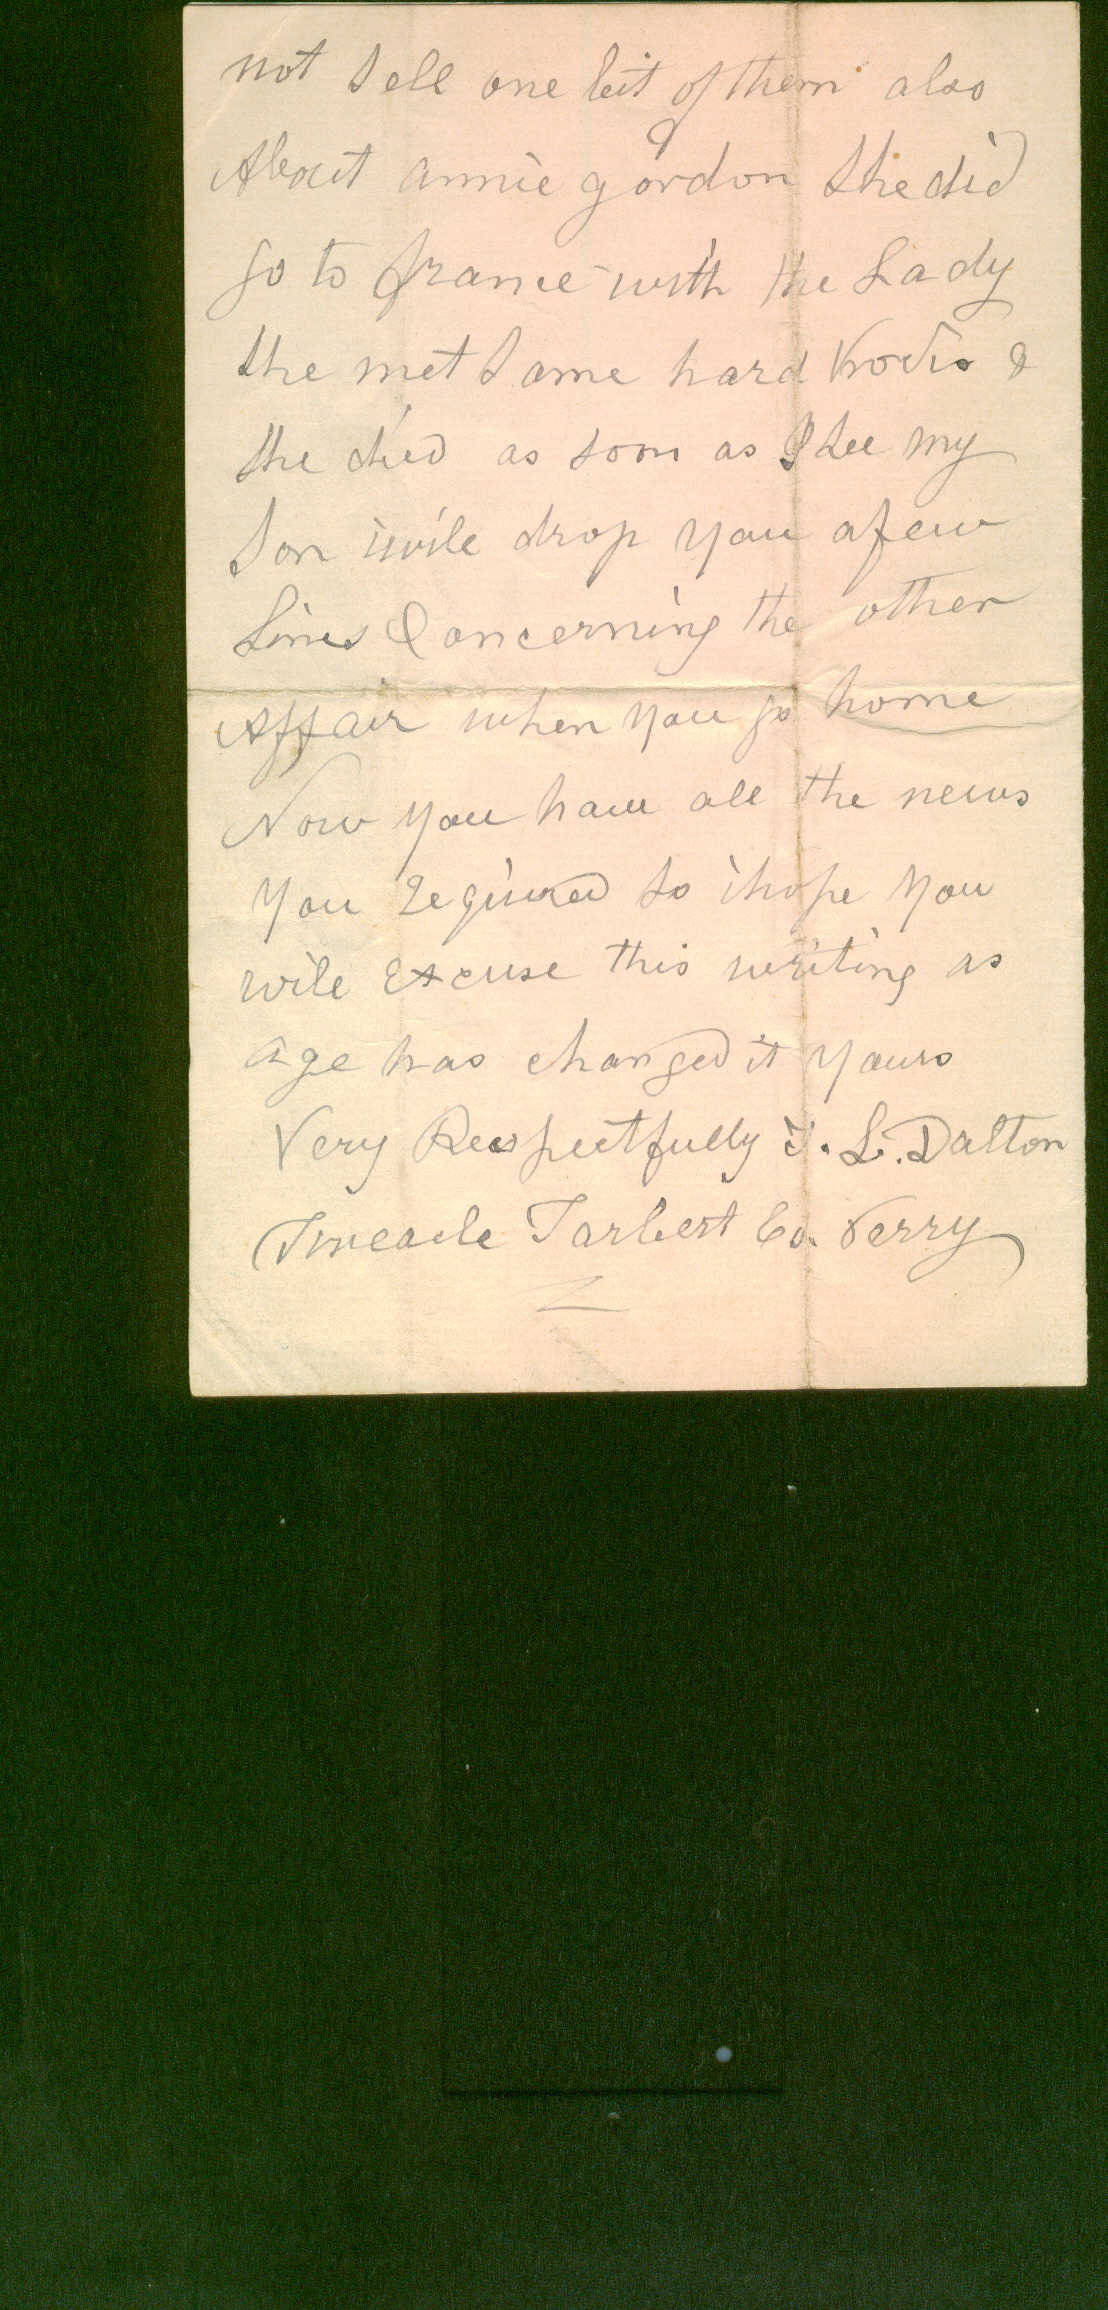 not sell one bit of them also
About annie gordon she did
go to france with the Lady
she met some hard &
she died as soon as I see my
Son iwile drop you afew
Lines Concerning the other
Affair when you go home
Now you have all the news
You required so ihope you
wile Excuse this writing as
age has changed it yours
Very Respectfully T. L. Dalton
Tarbert Co. Kerry